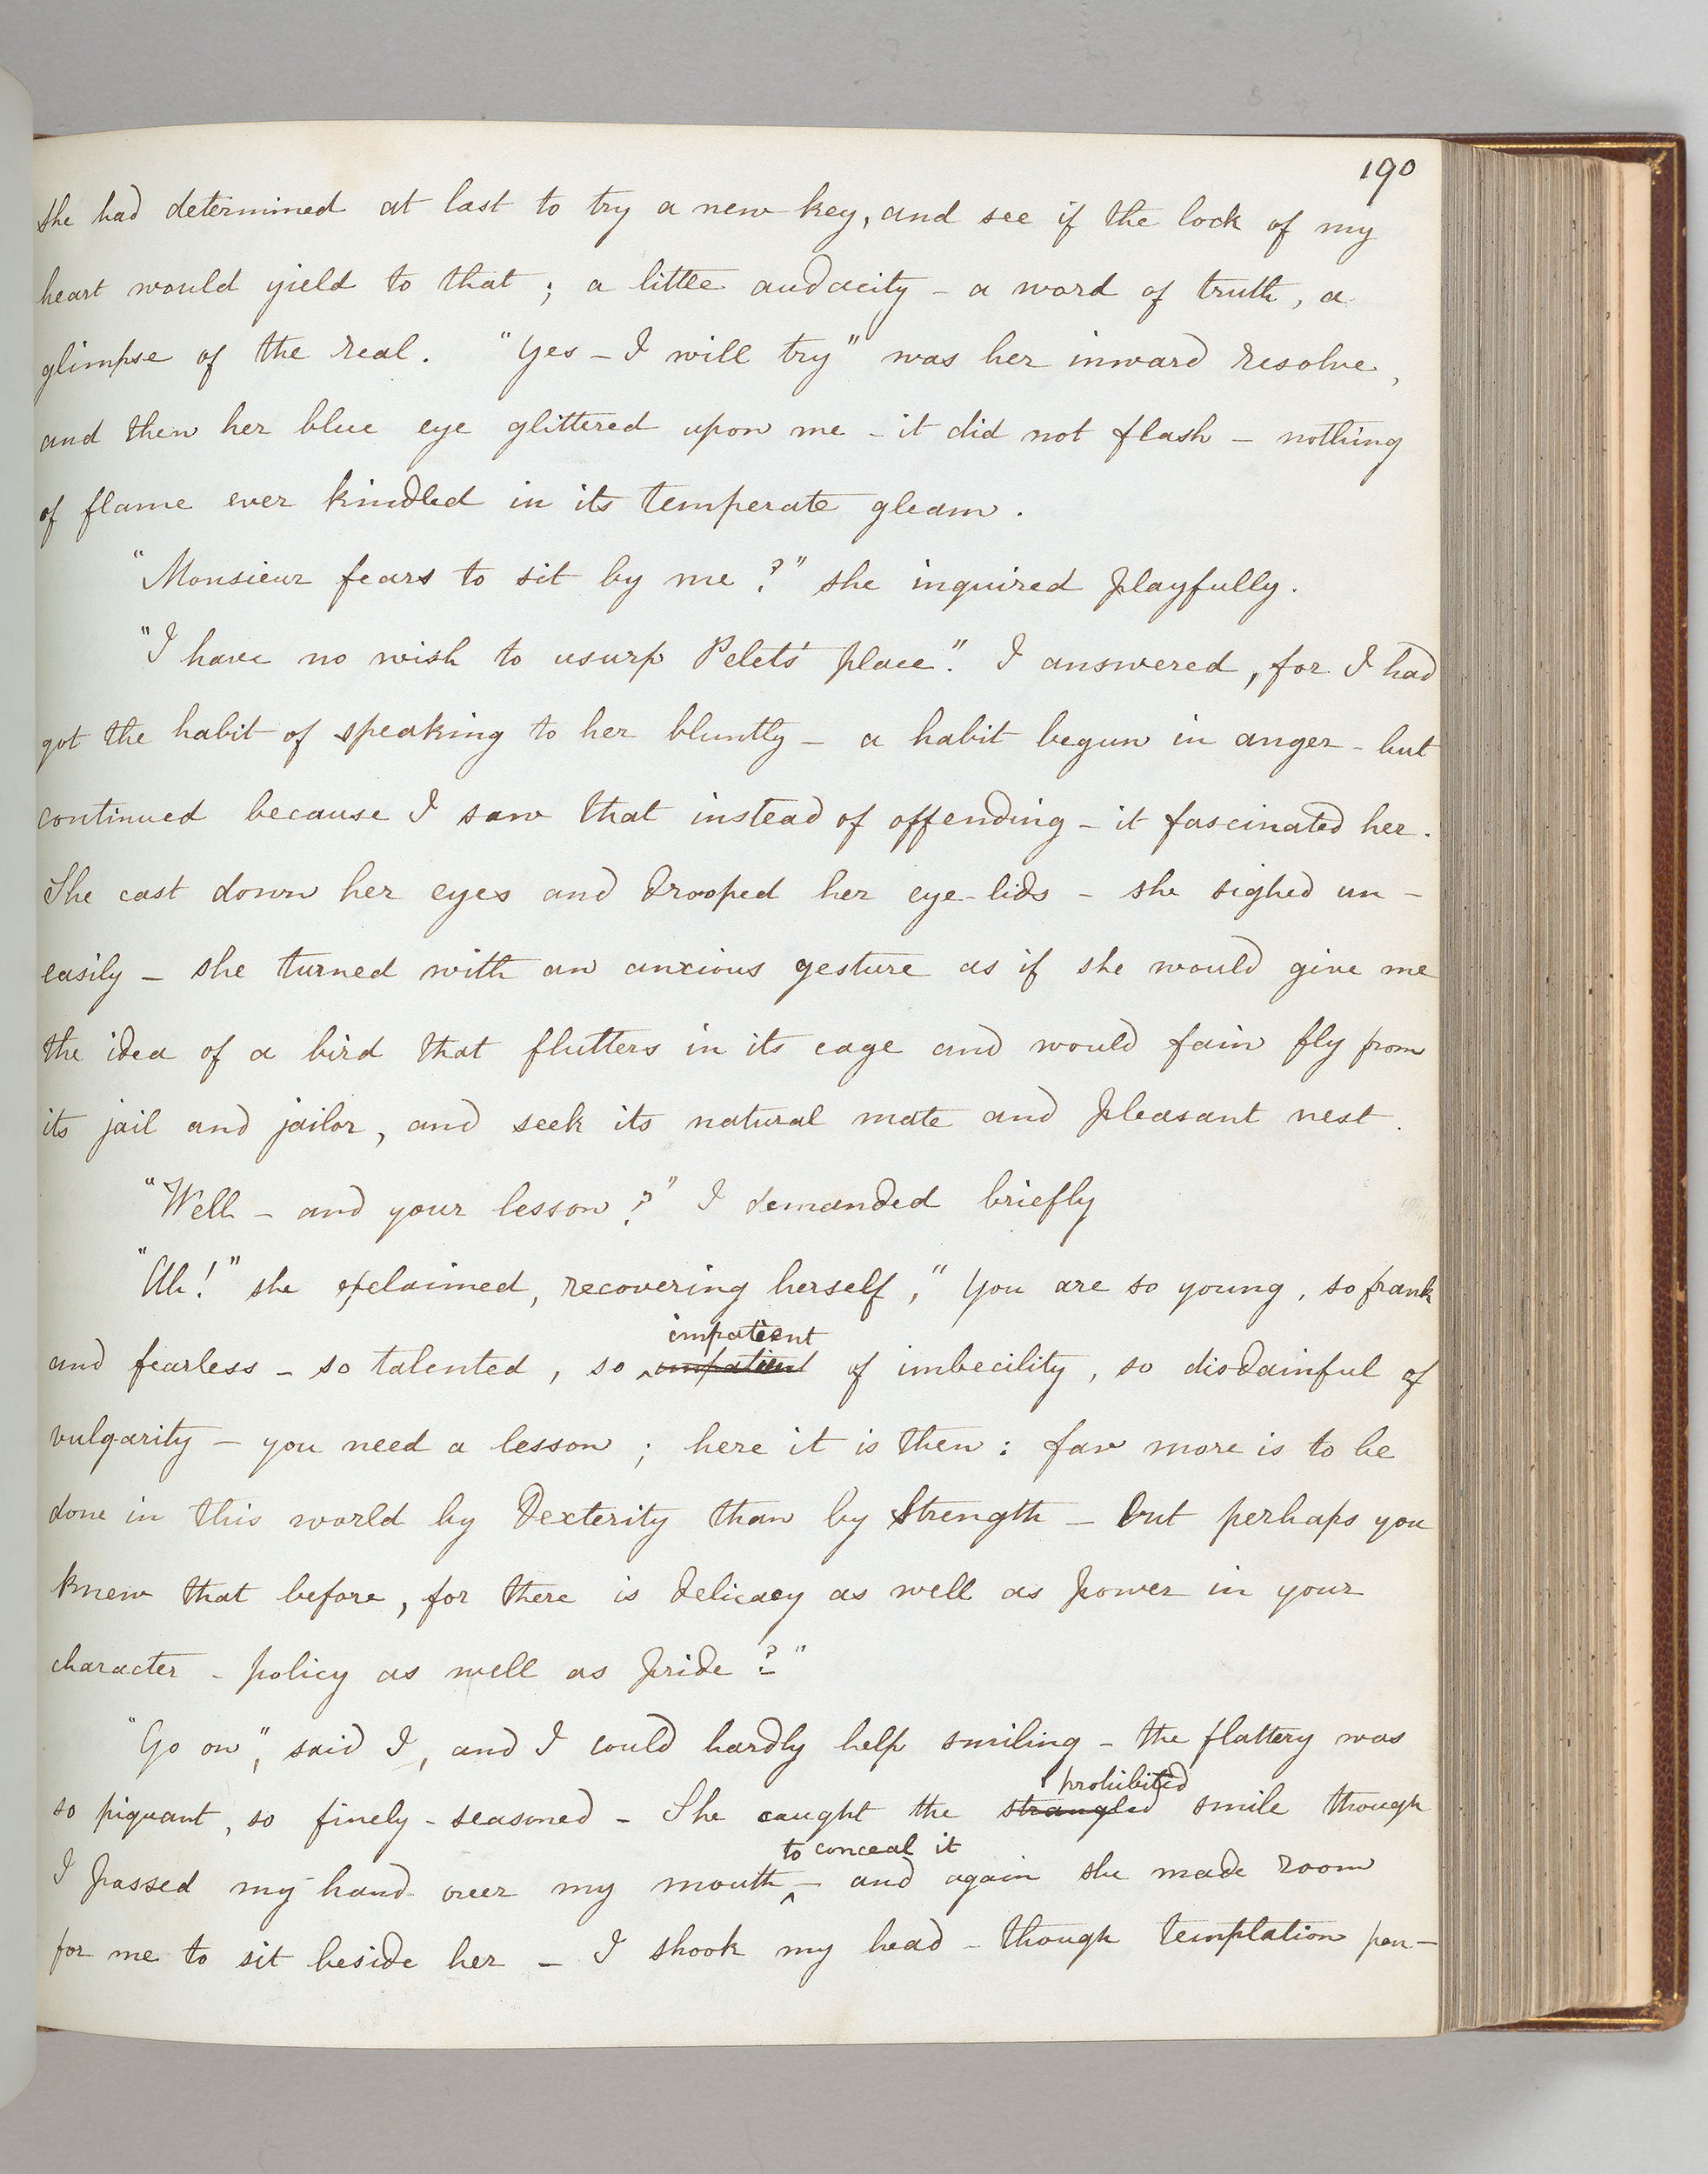 190
she had determined at last to try a new key, and see if the lock of my
heart would yield to that ; a little audacity – a word of truth, a
glimpse of the real. "Yes – I will try" was her inward resolve,
and then her blue eye glittered upon me – it did not flash – nothing
of flame ever kindled in its temperate gleam.
"Monsieur fears to sit by me ?" she inquired playfully.
"I have no wish to usurp Pelet's place". I answered, for I had
got the habit of speaking to her bluntly – a habit begun in anger – but
continued because I saw that instead of offending – it fascinated her.
She cast down her eyes and drooped her eye-lids – she sighed un-
easily – she turned with an anxious gesture as if she would give me
the idea of a bird that flutters in its cage and would fain fly from
its jail and jailor, and seek its natural mate and pleasant nest.
"Well – and your lesson ?" I demanded briefly
"Ah!" she exclaimed, recovering herself, "you are so young, so frank
impatient
and fearless – so talented, so impatient of imbecility, so disdainful of
vulgarity – you need a lesson ; here it is then : far more is to be
done in this world by Dexterity than by Strength – but perhaps you
knew that before, for there is delicacy as well as power in your
character – policy as well as pride ?"
"Go on", said I, and I could hardly help smiling – the flattery was
prohibited
so piquant, so finely-seasoned – She caught the strangled smile though
to conceal it
I passed my hand over my mouth – and again she made room
for me to sit beside her – I shook my head – though temptation pen-